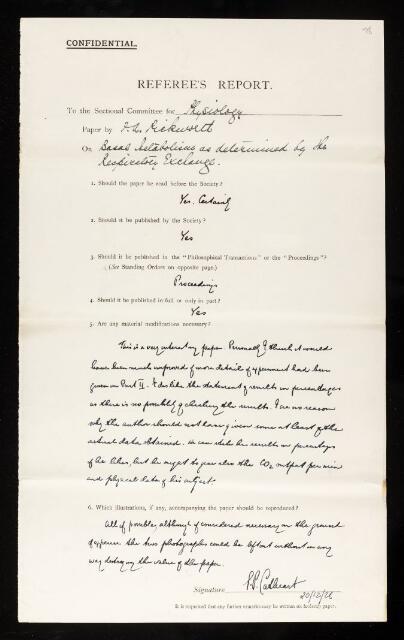 CONFIDENTIAL.
REFEREE'S REPORT.
To the Sectional Committee for Physiology
Paper by F. A. Pickworth
On Basal Metabolism as determined by the
Respiratory Exchange.
1. Should the paper be read before the Society?
Yes. Certainly
2. Should it be published by the Society?
Yes
3. Should it be published in the "Philosophical Transactions" or the "Proceedings"?
(See Standing Orders on opposite page.)
Proceedings
4. Should it be published in full or only in part?
Yes
5. Are any material modifications necessary?
This is a very interesting paper. Personally I think it would
have been much improved if more detail of experiment had been
given in Part II. I dislike the statement of results in percentages
as there is no possibility of checking the results. I see no reason
why the author should not have given some at least of the
actual data obtained. He can state his results in percentages
if he likes, but he ought to give also the CO2 output per min
and physical data of his subject.
6. Which illustrations, if any, accompanying the paper should be reproduced?
All if possible, although if considered necessary on the ground
of expense the two photographs could be left out without in any
way destroying the value of the paper.
Signature E. P. Cathcart
It is requested that any further remarks may be written on foolscap paper.